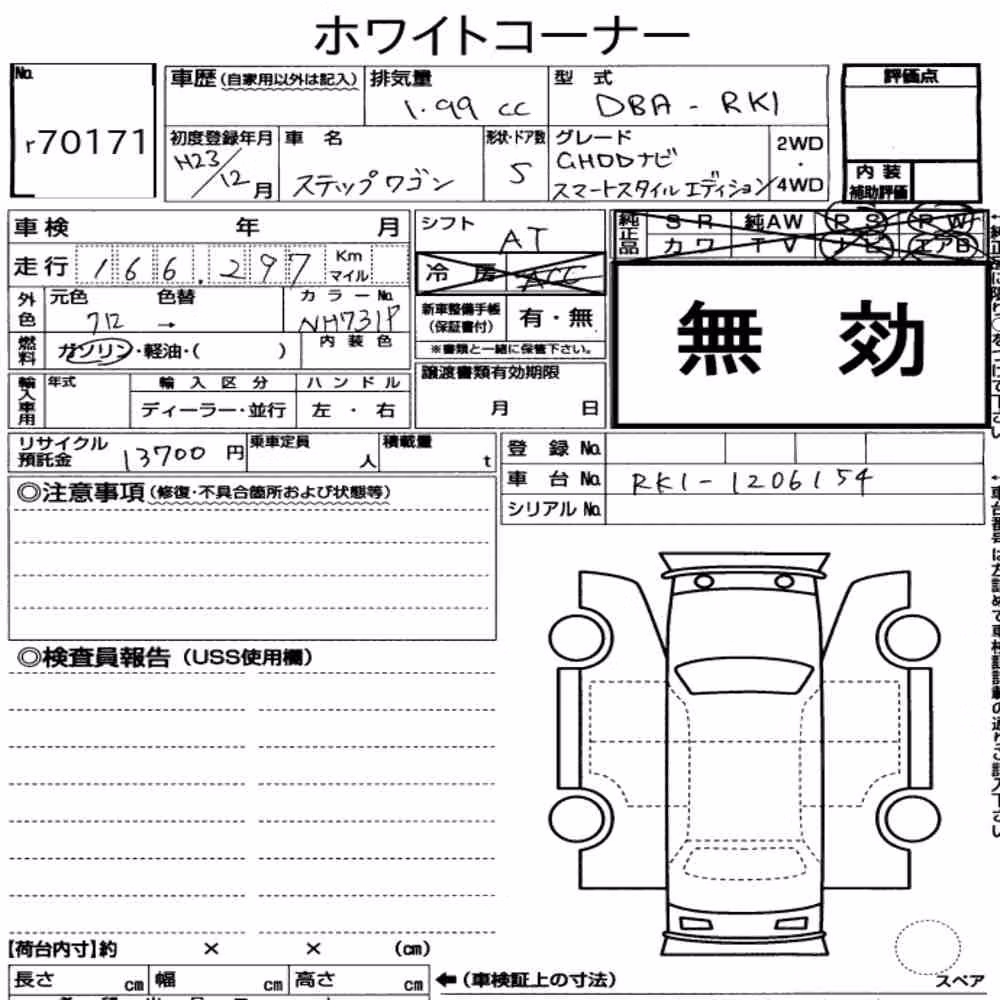 ホワイトコーナー
No. r70171
車歴(自家用以外は記入) 排気量 1.99 cc 型式 DBA - RK1 評価点
初度登録年月 H23/12月 車名 ステップワゴン 形状・ドア数 5 グレード GHDDナビ スマートスタイルエディション 2WD・4WD 内装補助評価
車検 年 月 シフト AT
純正品 SR 純AW PS PW
カワ TV エアB
走行 166.297 Km マイル
冷房 ACC
無効
外色 元色 712 色替 → カラーNo. NH731P
新車整備手帳(保証書付) 有・無
燃料 ガソリン・軽油・( ) 内装色
※書類と一緒に保管下さい。
輸入車用 年式 輸入区分 ハンドル
ディーラー・並行 左・右
譲渡書類有効期限 月 日
リサイクル預託金 13700円 乗車定員 人 積載量 t
登録No.
車台No. RK1-1206154
シリアルNo.
◎注意事項(修復・不具合箇所および状態等)
◎検査員報告(USS使用欄)
【荷台内寸】約 × × (cm)
長さ cm 幅 cm 高さ cm ←(車検証上の寸法)
スペア